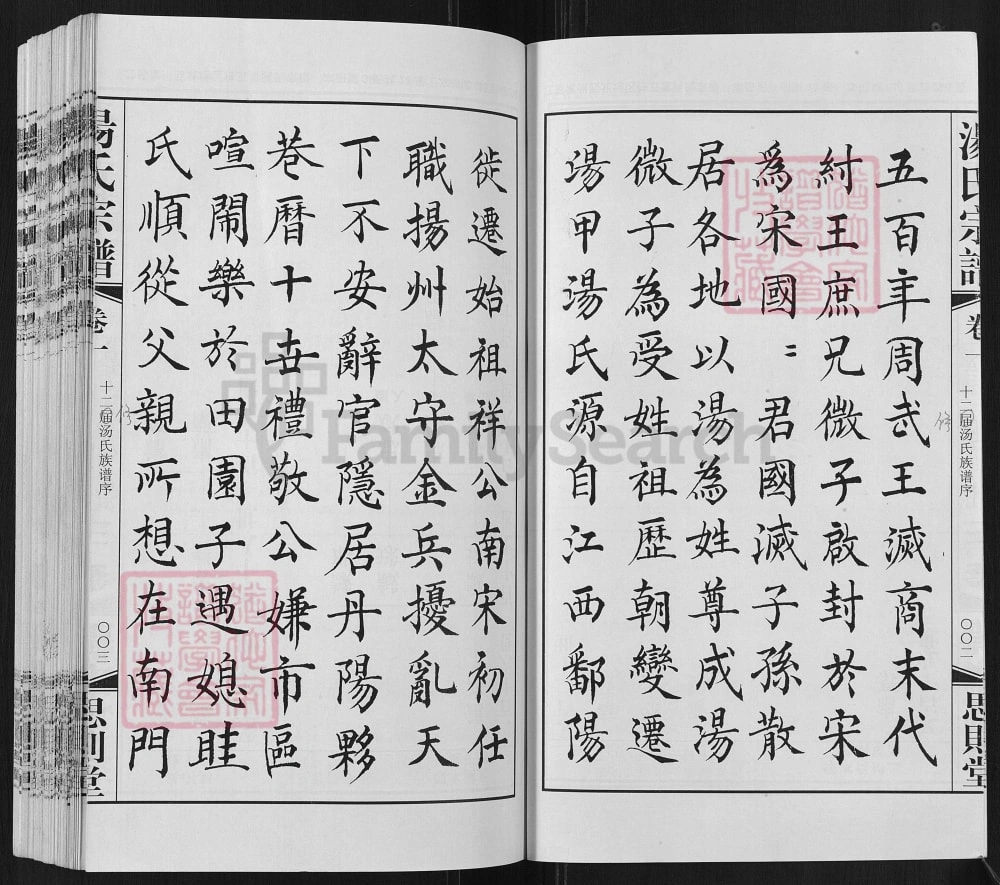 湯氏宗譜
卷一
十二届汤氏族谱序
〇〇二
思則堂
五百年周武王滅商末代
紂王庶兄微子啟封於宋
爲宋國〻君國滅子孫散
居各地以湯為姓尊成湯
微子為受姓祖歷朝變遷
湯甲湯氏源自江西鄱陽
徙遷始祖祥公南宋初任
職揚州太守金兵擾亂天
下不安辭官隱居丹陽夥
巷曆十世禮敬公嫌市區
喧鬧樂於田園子遇媳眭
氏順從父親所想在南門
湯氏宗譜
卷一
十二届汤氏族谱序
〇〇三
思則堂
FamilySearch